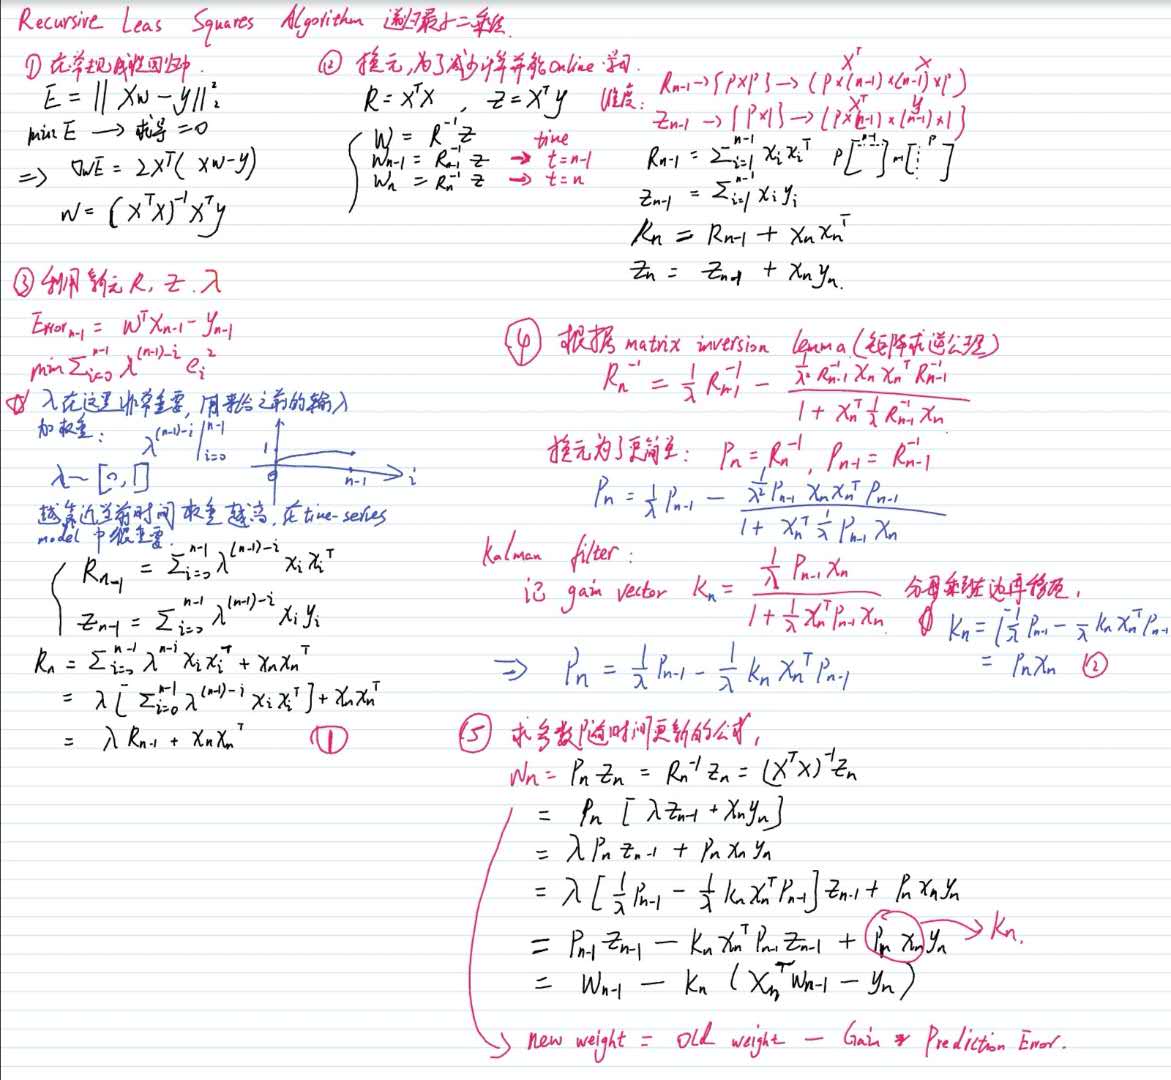 Recursive Leas Squares Algorithm 递归最小二乘法
① 在常规线性回归中.
E = || Xw - y ||²₂
min E → 求导 = 0
⇒ ∇wE = 2Xᵀ( Xw-y)
w = (XᵀX)⁻¹Xᵀy
② 换元,为了减少计算并能online 学习.
R = XᵀX , Z = Xᵀy
W = R⁻¹Z time
Wn-1 = Rn-1⁻¹ Z → t=n-1
Wn = Rn⁻¹ Z → t=n
Xᵀ X
维度: Rn-1 → {P×P} → (P×(n-1)×(n-1)×P)
Xᵀ y
Zn-1 → {P×1} → (P×(n-1)×(n-1)×1}
Rn-1 = Σⁿ⁻¹ᵢ₌₁ xᵢxᵢᵀ
Zn-1 = Σⁿ⁻¹ᵢ₌₁ xᵢyᵢ
Rn = Rn-1 + xnxnᵀ
Zn = Zn-1 + xnyn.
③ 利用新元 R, Z. λ
Errorn-1 = WᵀXn-1 - yn-1
min Σⁿ⁻¹ᵢ₌₀ λ⁽ⁿ⁻¹⁾⁻ⁱ eᵢ²
λ在这里非常重要, 用来给之前的输入
加权重: λ⁽ⁿ⁻¹⁾⁻ⁱ |ⁿ⁻¹ᵢ₌₀
1
0 n-1 i
λ ~ [0, 1]
越靠近当前时间 权重越高, 在time-series
model 中很重要.
Rn-1 = Σⁿ⁻¹ᵢ₌₀ λ⁽ⁿ⁻¹⁾⁻ⁱ xᵢxᵢᵀ
Zn-1 = Σⁿ⁻¹ᵢ₌₀ λ⁽ⁿ⁻¹⁾⁻ⁱ xᵢyᵢ
Rn = Σⁿ⁻¹ᵢ₌₀ λⁿ⁻ⁱ xᵢxᵢᵀ + xnxnᵀ
= λ [ Σⁿ⁻¹ᵢ₌₀ λ⁽ⁿ⁻¹⁾⁻ⁱ xᵢxᵢᵀ ] + xnxnᵀ
= λ Rn-1 + xnxnᵀ ①
④ 根据 matrix inversion lemma (矩阵求逆公理)
Rn⁻¹ = 1/λ Rn-1⁻¹ - (1/λ² Rn-1⁻¹ xn xnᵀ Rn-1⁻¹) / (1 + xnᵀ 1/λ Rn-1⁻¹ xn)
换元为了更简单: Pn = Rn⁻¹, Pn-1 = Rn-1⁻¹
Pn = 1/λ Pn-1 - (1/λ² Pn-1 xn xnᵀ Pn-1) / (1 + xnᵀ 1/λ Pn-1 xn)
Kalman filter:
记 gain vector Kn = (1/λ Pn-1 xn) / (1 + 1/λ xnᵀ Pn-1 xn) 分母乘左边再移项,
① Kn = [1/λ Pn-1 - 1/λ Kn xnᵀ Pn-1
= Pn xn ②
⇒ Pn = 1/λ Pn-1 - 1/λ Kn xnᵀ Pn-1
⑤ 求参数随时间更新的公式,
Wn = Pn Zn = Rn⁻¹ Zn = (XᵀX)⁻¹Zn
= Pn [ λ Zn-1 + xnyn ]
= λ Pn Zn-1 + Pn xn yn
= λ [ 1/λ Pn-1 - 1/λ Kn xnᵀ Pn-1 ] Zn-1 + Pn xn yn
= Pn-1 Zn-1 - Kn xnᵀ Pn-1 Zn-1 + Pn xn yn → Kn.
= Wn-1 - Kn ( xnᵀ Wn-1 - yn )
new weight = Old weight - Gain * Prediction Error.